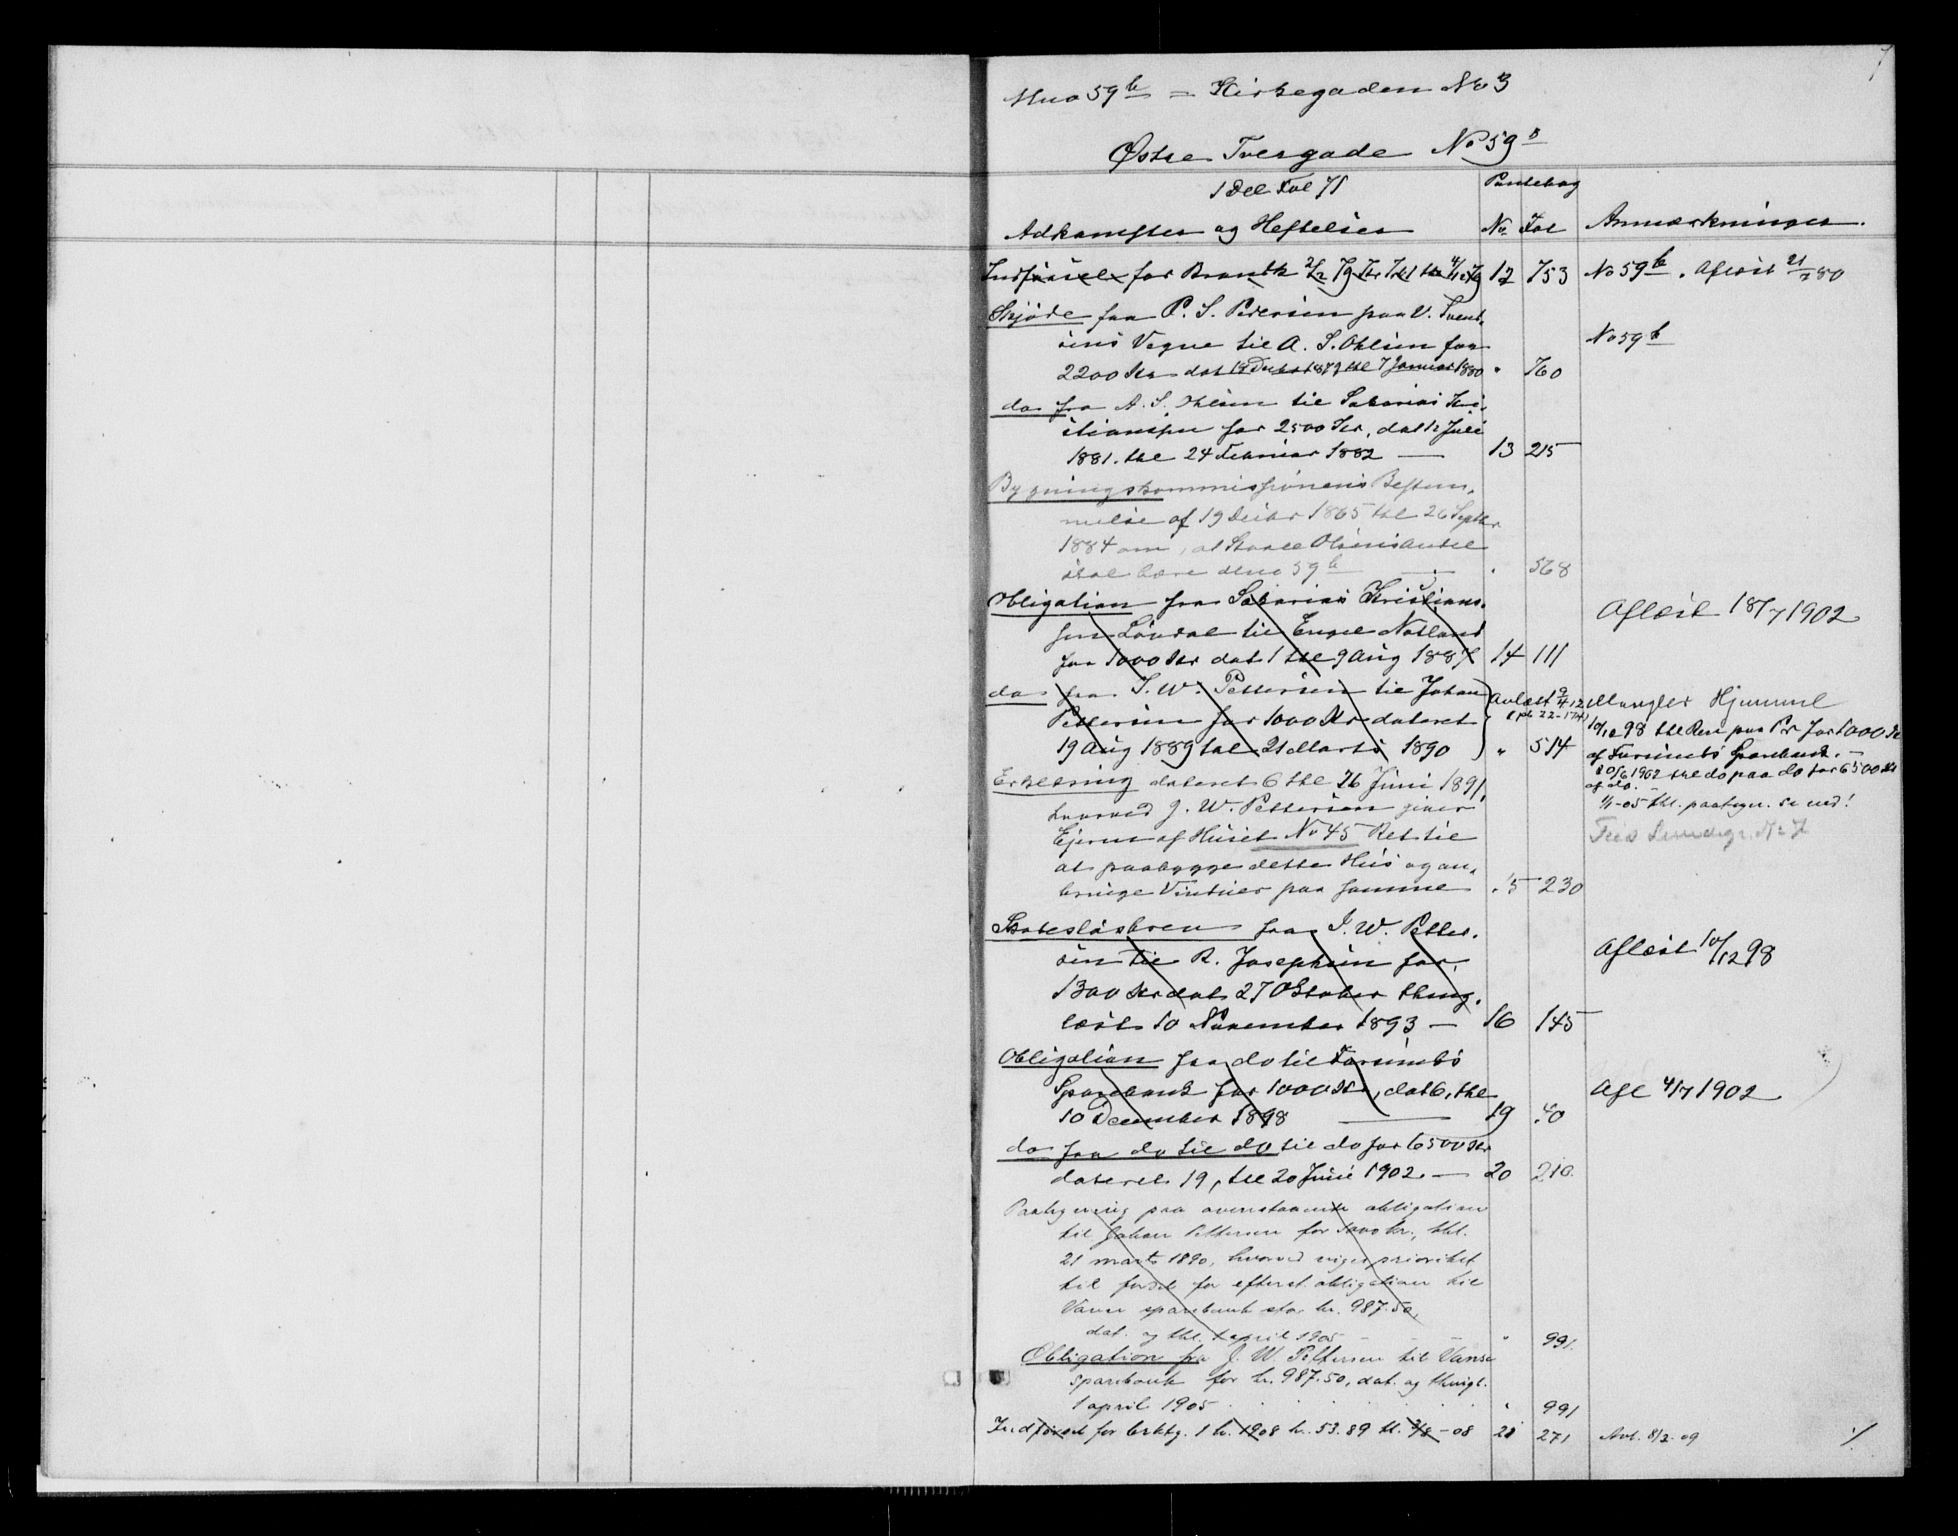 Mno 59 b = Kirkegaden No 3
Østre Tvergade No 59 b
1 Del Fol 71
Pantebog
Adkomster og Heftelser No Fol Anmærkninger.
Indførsel for Brandk 2/12 79 Kr 7,61 thl 4/12 79 12 753 No 59 b. Aflæst 21/7 80
Skjøde fra P. S. Pedersen paa V. Svend-
sens Vegne til A. S. Ohlsen for No 59 b
2200 Kr dat 19 Decbr 1879 thl 7 Januar 1880 " 760
do fra A. S. Ohlsen til Sakarias Kri-
stiansen for 2500 Kr, dat 12 Juli
1881. thl 24 Februar 1882 — 13 215
Bygningskommissionens Bestem-
melse af 19 Decbr 1865 thl 26 Septbr
1884 om, at Staale Olsens Andel
skal bære Mno 59 b — " 568
Obligation fra Sakarias Kristian-
sen Lövdal til Engel Natland Aflæst 18/7 1902
for 1000 Kr dat 1 thl 9 Aug 1887 14 111
do fra J. W. Pettersen til Johan Avlæst 9/4 12 Mangler Hjemmel
Pettersen for 1000 Kr dateret (pb 22-174) 10/12 98 thl Res paa Pr for 1000 Kr
19 Aug 1889 thl 21 Marts 1890 " 514 af Farsunds Sparebank. —
20/6 1902 thl do paa do for 6500 Kr
af do. —
1/4-05 thl. paategn. se ned!
Erklæring dateret 6 thl 26 Juni 1891,
hvorved J. W. Pettersen giver
Ejeren af Huset No 45 Ret til
at paabygge dette Hus og an-
bringe Vinduer paa samme 15 230
Skadesløsbrev fra J. W. Petter-
sen til R. Josephsen for Aflæst 10/12 98
1300 Kr dat 27 Oktober thing-
læst 10 November 1893 — 16 145
Obligation fra do til Farsunds
Sparebank for 1000 Kr, dat 6, thl Afl 4/7 1902
10 December 1898 — 19 40
do fra do til do til do for 6500 Kr
dateret 19, thl 20 Juni 1902. — 20 210
Paategning paa ovenstaaende obligation
til Johan Pettersen for 1000 kr., thl.
21 marts 1890, hvorved viges prioritet
til fordel for efterst. obligation til
Vanse sparebank stor kr. 987.50,
dat. og thl. 1 april 1905 — " 991.
Obligation fra J. W. Pettersen til Vanse
sparebank for kr. 987.50, dat. og thingl.
1 april 1905 . . . . . " 991
Indførsel for brktg. 1 h. 1908 kr. 53.89 tl. 7/8-08 21 271 Avl. 8/2-09